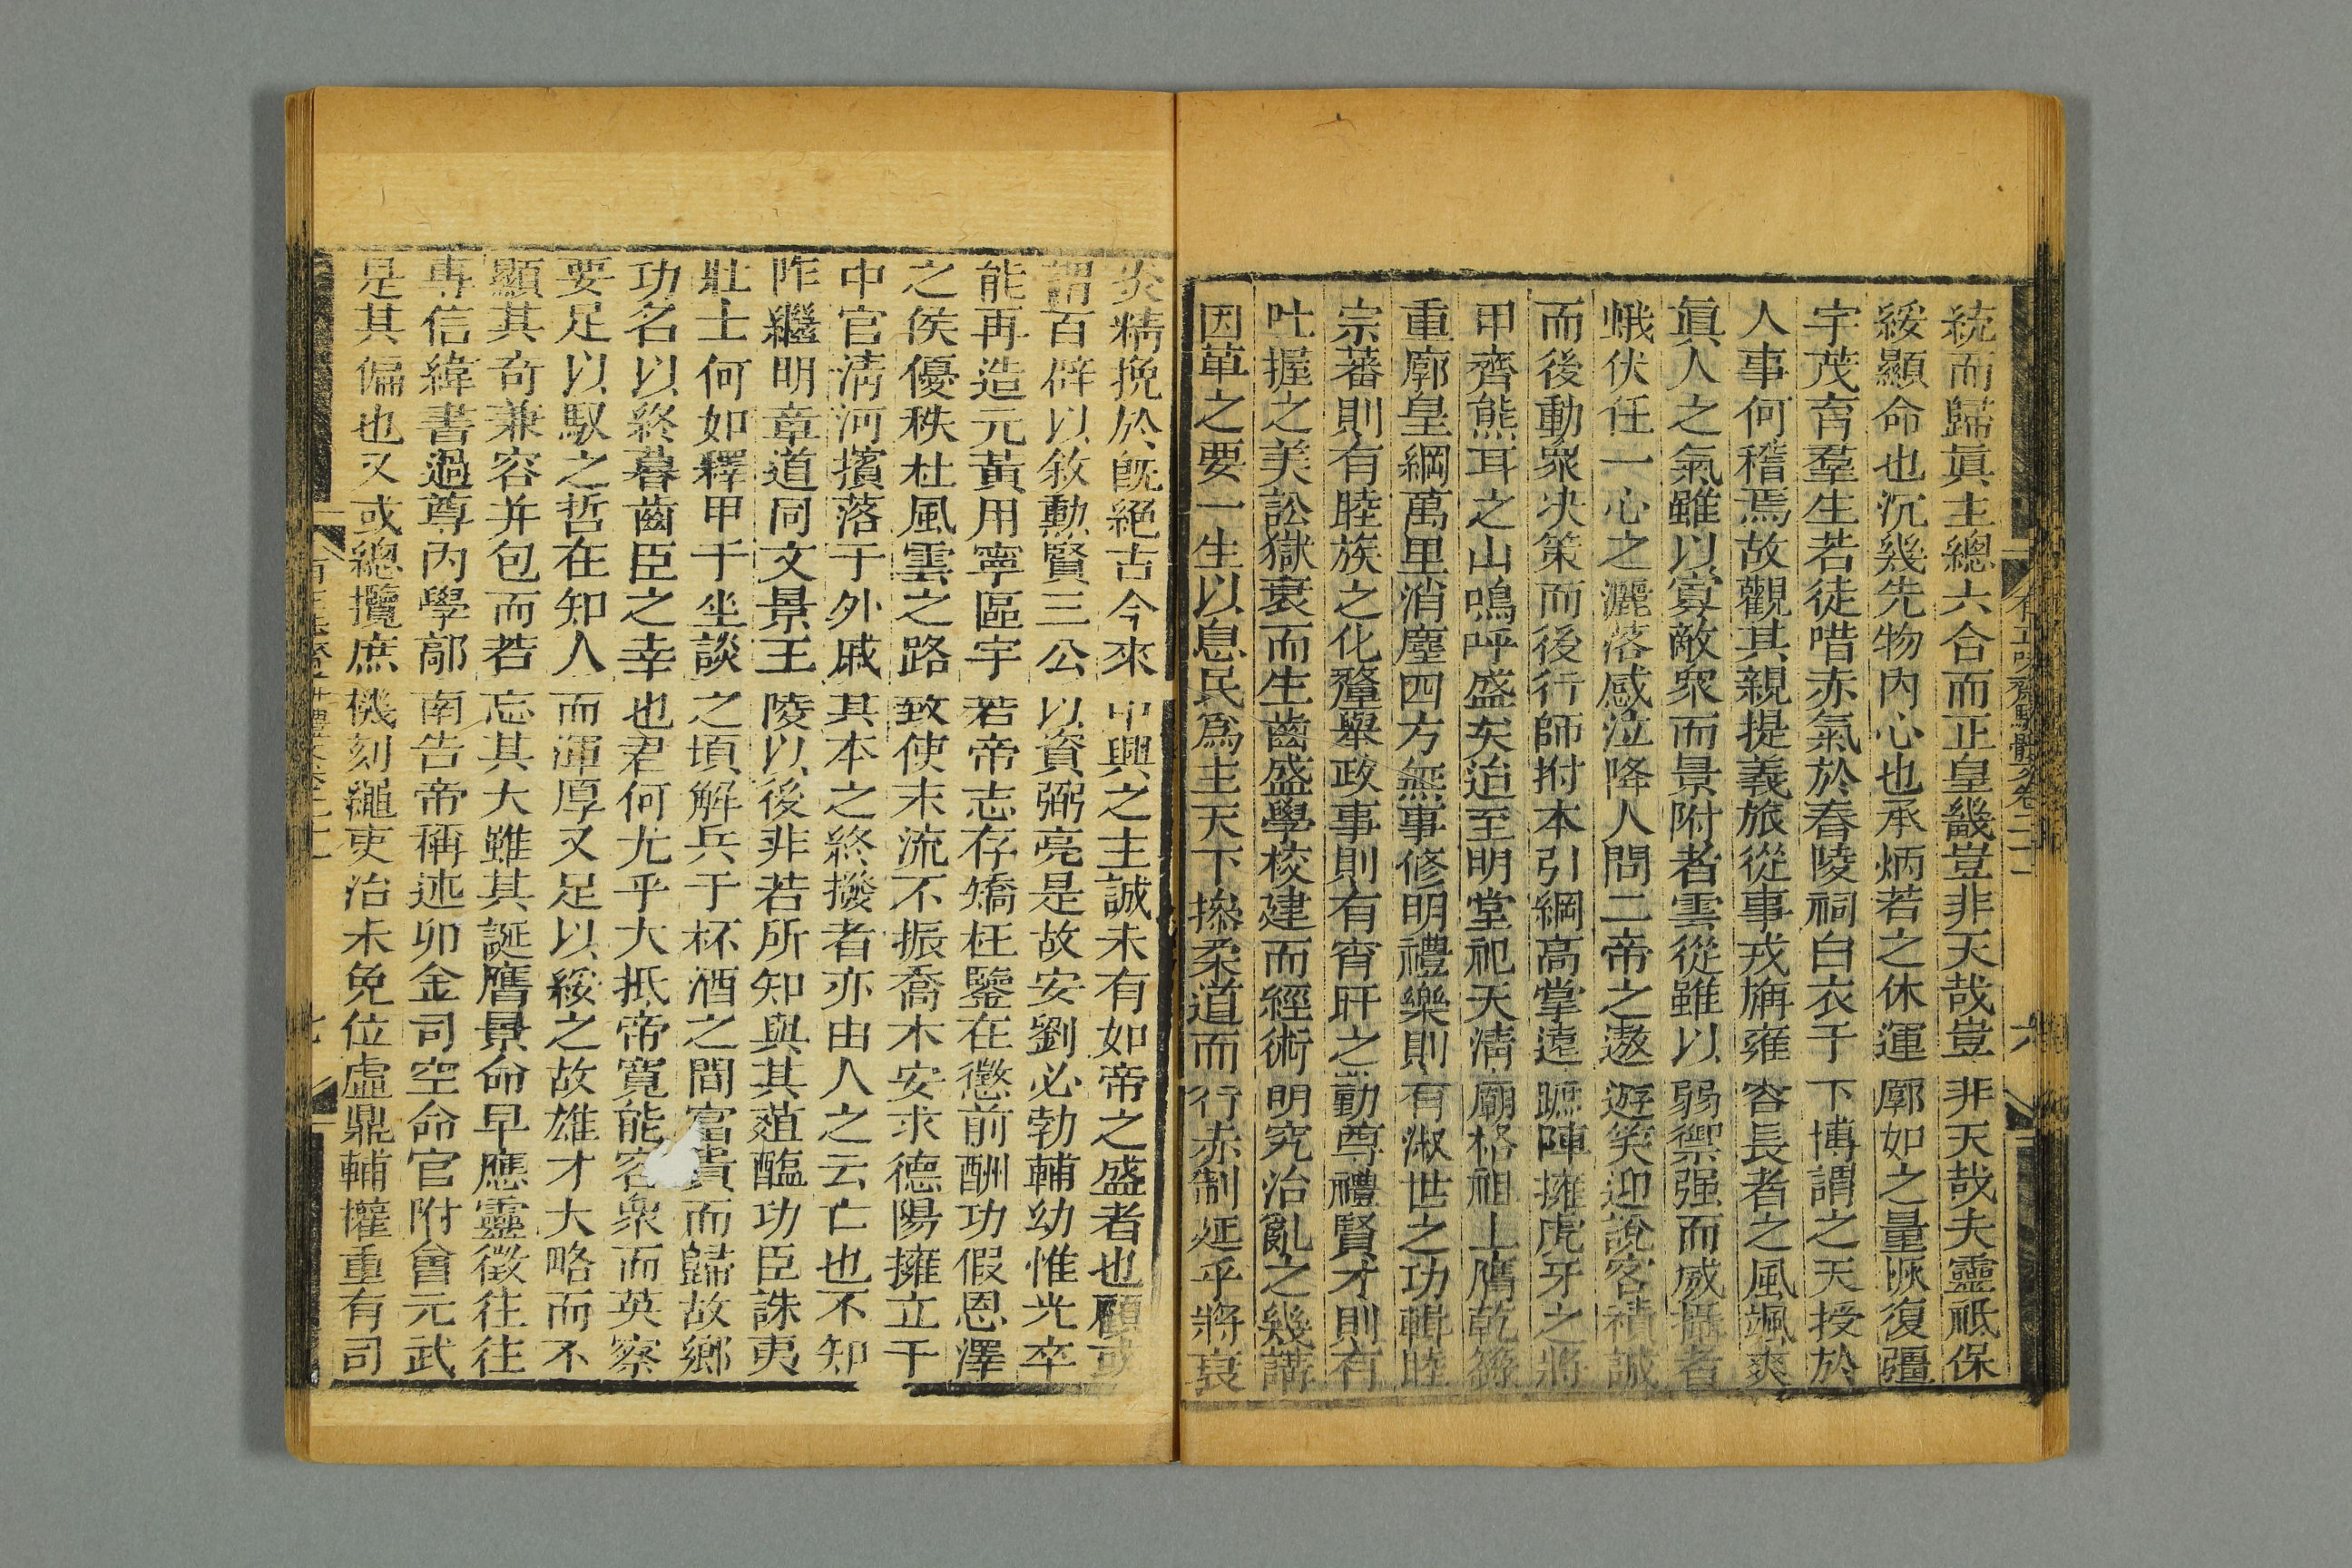 統而歸眞主總六合而正皇畿豈非天哉豈非天哉夫靈祗保
綏顯命也沉幾先物內心也承炳若之休運廓如之量恢復疆
宇茂育羣生若徒喈赤氣於舂陵祠白衣于下博謂之天授於
人事何稽焉故觀其親提義旅從事戎旃雍容長者之風颯爽
眞人之氣雖以寡敵衆而景附者雲從雖以弱禦强而威攝者
蛾伏任一心之灑落感泣降人問二帝之遨遊笑迎說客積誠
而後動衆決策而後行師拊本引綱高掌遠蹠陣擁虎牙之將
甲齊熊耳之山嗚呼盛矣迨至明堂祀天淸廟格祖上膺乾籙
重廓皇綱萬里消塵四方無事修明禮樂則有淑世之功輯睦
宗蕃則有睦族之化釐舉政事則有宵旰之勤尊禮賢才則有
吐握之美訟獄衰而生齒盛學校建而經術明究治亂之幾講
因革之要一生以息民爲主天下操柔道而行赤制延乎將衰
炎精挽於旣絕古今來中興之主誠未有如帝之盛者也顧或
謂百辟以敘勳賢三公以資弼亮是故安劉必勃輔幼惟光卒
能再造元黃用寧區宇若帝志存矯枉鑒在懲前酬功假恩澤
之侯優秩杜風雲之路致使末流不振喬木安求德陽擁立干
中官淸河擯落于外戚其本之終撥者亦由人之云亡也不知
阼繼明章道同文景王陵以後非若所知與其葅醢功臣誅夷
壯士何如釋甲千坐談之頃解兵于杯酒之間富貴而歸故鄉
功名以終暮齒臣之幸也君何尤乎大抵帝寬能容衆而英察
要足以馭之哲在知人而渾厚又足以綏之故雄才大略而不
顯其奇兼容并包而若忘其大雖其誕膺景命早應靈徵往往
專信緯書過尊內學鄗南告帝稱述卯金司空命官附會元武
是其偏也又或總攬庶機刻繩吏治未免位虛鼎輔權重有司